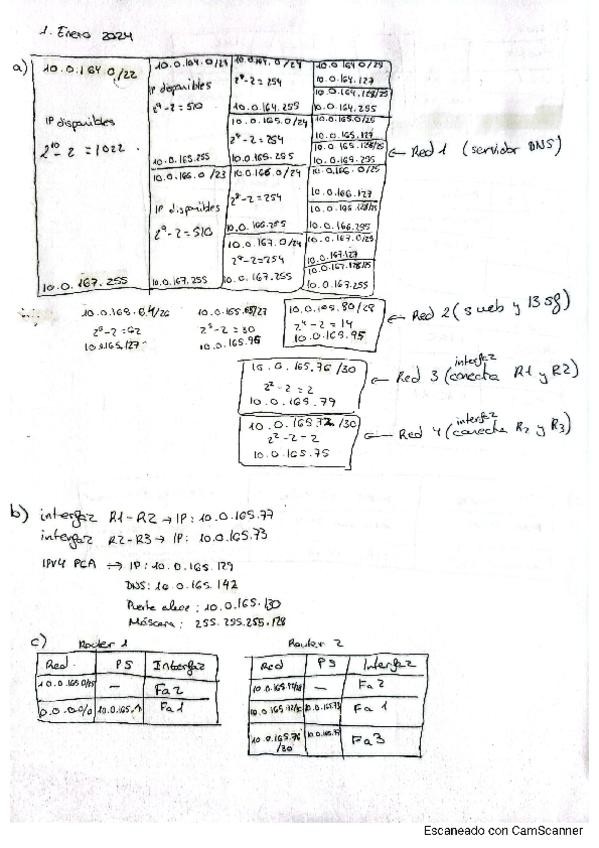 1. Enero 2024
a)
10.0.164.0/22
IP disponibles
2^10 - 2 = 1022
10.0.167.255
10.0.164.0/23
IP disponibles
2^9 - 2 = 510
10.0.165.255
10.0.166.0/23
IP disponibles
2^9 - 2 = 510
10.0.167.255
10.0.164.0/24
2^8 - 2 = 254
10.0.164.255
10.0.165.0/24
2^8 - 2 = 254
10.0.165.255
10.0.166.0/24
2^8 - 2 = 254
10.0.166.255
10.0.167.0/24
2^8 - 2 = 254
10.0.167.255
10.0.164.0/25
10.0.164.127
10.0.164.128/25
10.0.164.255
10.0.165.0/25
10.0.165.127
10.0.165.128/25
10.0.165.255
10.0.166.0/25
10.0.166.127
10.0.166.255
10.0.167.0/25
10.0.167.127
10.0.167.128/25
10.0.167.255
← Red 1 (servidor DNS)
2^6 - 2 = 62
10.0.165.127
2^5 - 2 = 30
10.0.165.95
10.0.165.80/28
2^4 - 2 = 14
10.0.165.95
← Red 2 (s web y 13 sg)
10.0.165.76/30
2^2 - 2 = 2
10.0.165.79
← Red 3 (interfaz conecta R1 y R2)
10.0.165.72/30
2^2 - 2 = 2
10.0.165.75
← Red 4 (interfaz conecta R2 y R3)
b) interfaz R1-R2 → IP: 10.0.165.77
interfaz R2-R3 → IP: 10.0.165.73
IPV4 PCA → IP: 10.0.165.129
DNS: 10.0.165.142
Puerta enlace: 10.0.165.130
Máscara: 255.255.255.128
c) Router 1
Red PS Interfaz
10.0.165.0/25 — Fa2
0.0.0.0/0 Fa1
Router 2
Red PS Interfaz
— Fa2
10.0.165.72/30 10.0.165.73 Fa1
10.0.165.76/30 Fa3
Escaneado con CamScanner